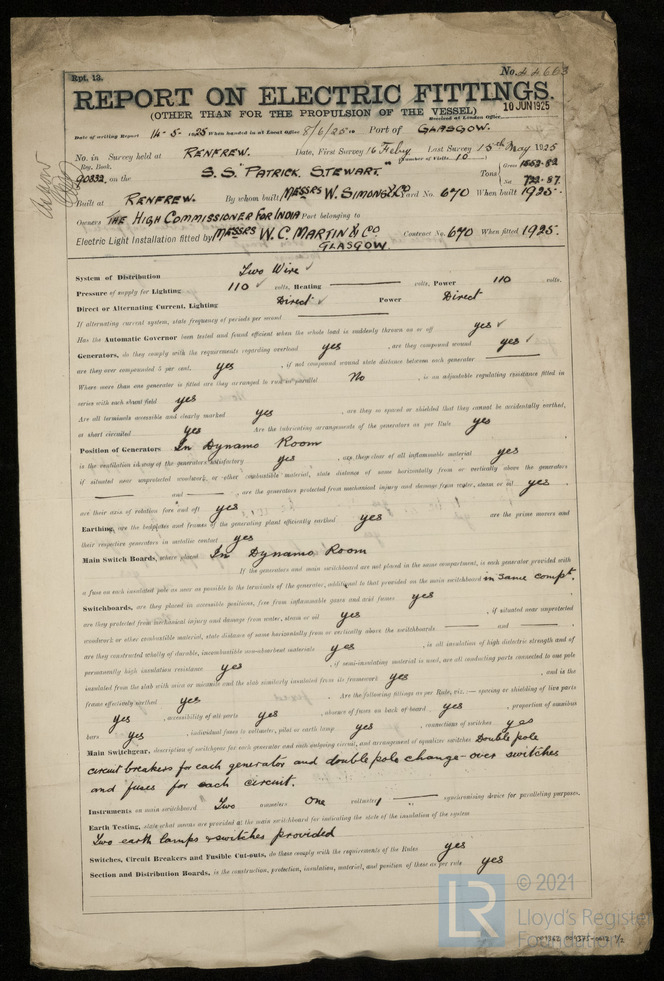 Rpt. 13.
No. 44663
REPORT ON ELECTRIC FITTINGS.
(OTHER THAN FOR THE PROPULSION OF THE VESSEL)
10 JUN 1925
Received at London Office
Date of writing Report 14-5-1925 When handed in at Local Office 8/6/25 Port of GLASGOW.
No. in Survey held at RENFREW. Date, First Survey 16 Feby Last Survey 15th May 1925
Reg. Book. Number of Visits 10
90832 on the S.S. "PATRICK STEWART" Tons Gross 1562.82
Net 722.87
Built at RENFREW. By whom built MESSRS W. SIMONS & Co Yard No. 670 When built 1925.
Owners THE HIGH COMMISSIONER FOR INDIA Port belonging to
Electric Light Installation fitted by MESSRS W. C. MARTIN & Co Contract No. 670 When fitted 1925.
GLASGOW
System of Distribution Two Wire ✓
Pressure of supply for Lighting 110 ✓ volts, Heating — volts, Power 110 volts.
Direct or Alternating Current, Lighting Direct ✓ Power Direct
If alternating current system, state frequency of periods per second —
Has the Automatic Governor been tested and found efficient when the whole load is suddenly thrown on or off yes ✓
Generators, do they comply with the requirements regarding overload yes, are they compound wound yes ✓
are they over compounded 5 per cent. yes, if not compound wound state distance between each generator —
Where more than one generator is fitted are they arranged to run in parallel No, is an adjustable regulating resistance fitted in
series with each shunt field yes
Are all terminals accessible and clearly marked yes, are they so spaced or shielded that they cannot be accidentally earthed,
or short circuited yes Are the lubricating arrangements of the generators as per Rule yes
Position of Generators In Dynamo Room
is the ventilation in way of the generators satisfactory yes, are they clear of all inflammable material yes
if situated near unprotected woodwork or other combustible material, state distance of same horizontally from or vertically above the generators
— and —, are the generators protected from mechanical injury and damage from water, steam or oil yes
are their axis of rotation fore and aft yes
Earthing, are the bedplates and frames of the generating plant efficiently earthed yes are the prime movers and
their respective generators in metallic contact yes
Main Switch Boards, where placed In Dynamo Room
If the generators and main switchboard are not placed in the same compartment, is each generator provided with
a fuse on each insulated pole as near as possible to the terminals of the generator, additional to that provided on the main switchboard in same compt.
Switchboards, are they placed in accessible positions, free from inflammable gases and acid fumes yes
are they protected from mechanical injury and damage from water, steam or oil yes, if situated near unprotected
woodwork or other combustible material, state distance of same horizontally from or vertically above the switchboards — and —
are they constructed wholly of durable, incombustible non-absorbent materials yes, is all insulation of high dielectric strength and of
permanently high insulation resistance yes, if semi-insulating material is used, are all conducting parts connected to one pole
insulated from the slab with mica or micanite and the slab similarly insulated from its framework yes, and is the
frame effectively earthed yes Are the following fittings as per Rule, viz.:— spacing or shielding of live parts
yes, accessibility of all parts yes, absence of fuses on back of board yes, proportion of omnibus
bars yes, individual fuses to voltmeter, pilot or earth lamp yes, connections of switches yes
Main Switchgear, description of switchgear for each generator and each outgoing circuit, and arrangement of equalizer switches Double pole
circuit breakers for each generator and double pole change-over switches
and fuses for each circuit.
Instruments on main switchboard Two ammeters One voltmeter — synchronising device for paralleling purposes.
Earth Testing, state what means are provided at the main switchboard for indicating the state of the insulation of the system
Two earth lamps & switches provided
Switches, Circuit Breakers and Fusible Cut-outs, do these comply with the requirements of the Rules yes
Section and Distribution Boards, is the construction, protection, insulation, material, and position of these as per rule yes
LR
© 2021
Lloyd's Register
Foundation